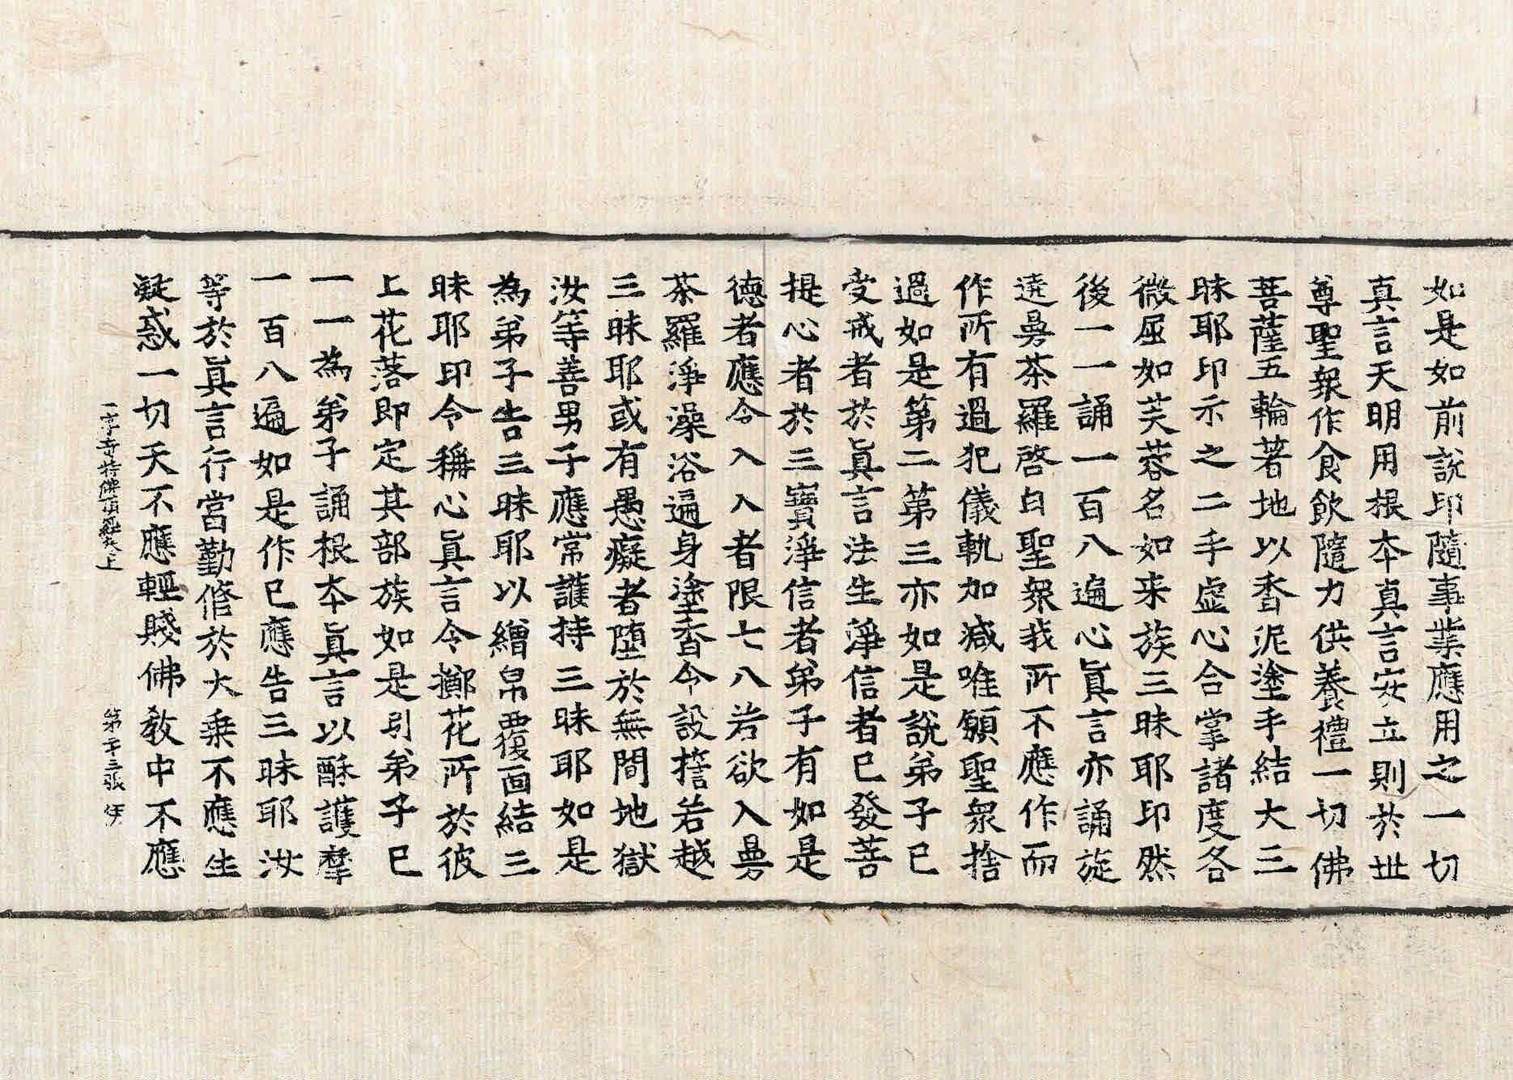 如是如前說印隨事業應用之一切
真言天明用根本真言安立則於世
尊聖衆作食飲隨力供養禮一切佛
菩薩五輪著地以香泥塗手結大三
昧耶印示之二手虛心合掌諸度各
微屈如芙蓉名如来族三昧耶印然
後一一誦一百八遍心眞言亦誦旋
遶曼茶羅啓白聖衆我所不應作而
作所有過犯儀軌加減唯願聖衆捨
過如是第二第三亦如是說弟子已
受戒者於眞言法生淨信者已發菩
提心者於三寶淨信者弟子有如是
德者應令入入者限七八若欲入曼
茶羅淨澡浴遍身塗香令設誓若越
三昧耶或有愚癡者墮於無間地獄
汝等善男子應常護持三昧耶如是
為弟子告三昧耶以繒帛覆面結三
昧耶印令稱心眞言令擲花所於彼
上花落即定其部族如是引弟子已
一一為弟子誦根本眞言以酥護摩
一百八遍如是作已應告三昧耶汝
等於眞言行當勤修於大乘不應生
疑惑一切天不應輕賤佛教中不應
一字奇特佛頂經卷上 第二十三張